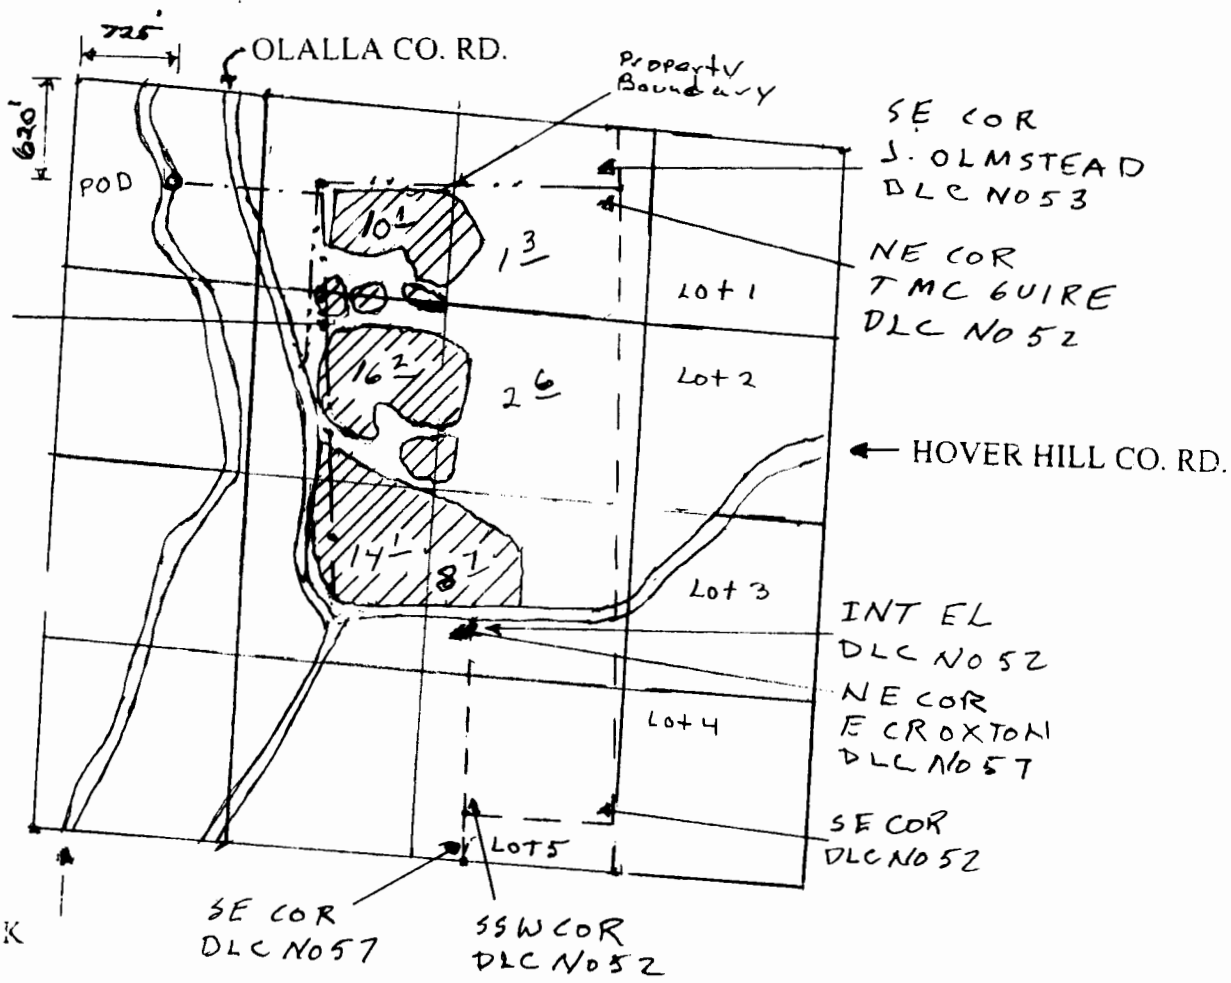 725'
OLALLA CO. RD.
Property
Boundary
620'
POD
SE COR
J. OLMSTEAD
DLC NO 53
10 1
1 3
NE COR
T MC GUIRE
DLC NO 52
Lot 1
16 2
2 6
Lot 2
HOVER HILL CO. RD.
14 1
8 7
Lot 3
INT EL
DLC NO 52
NE COR
E CROXTON
DLC NO 57
Lot 4
SE COR
DLC NO 52
LOT 5
SE COR
DLC NO 57
SSW COR
DLC NO 52
K